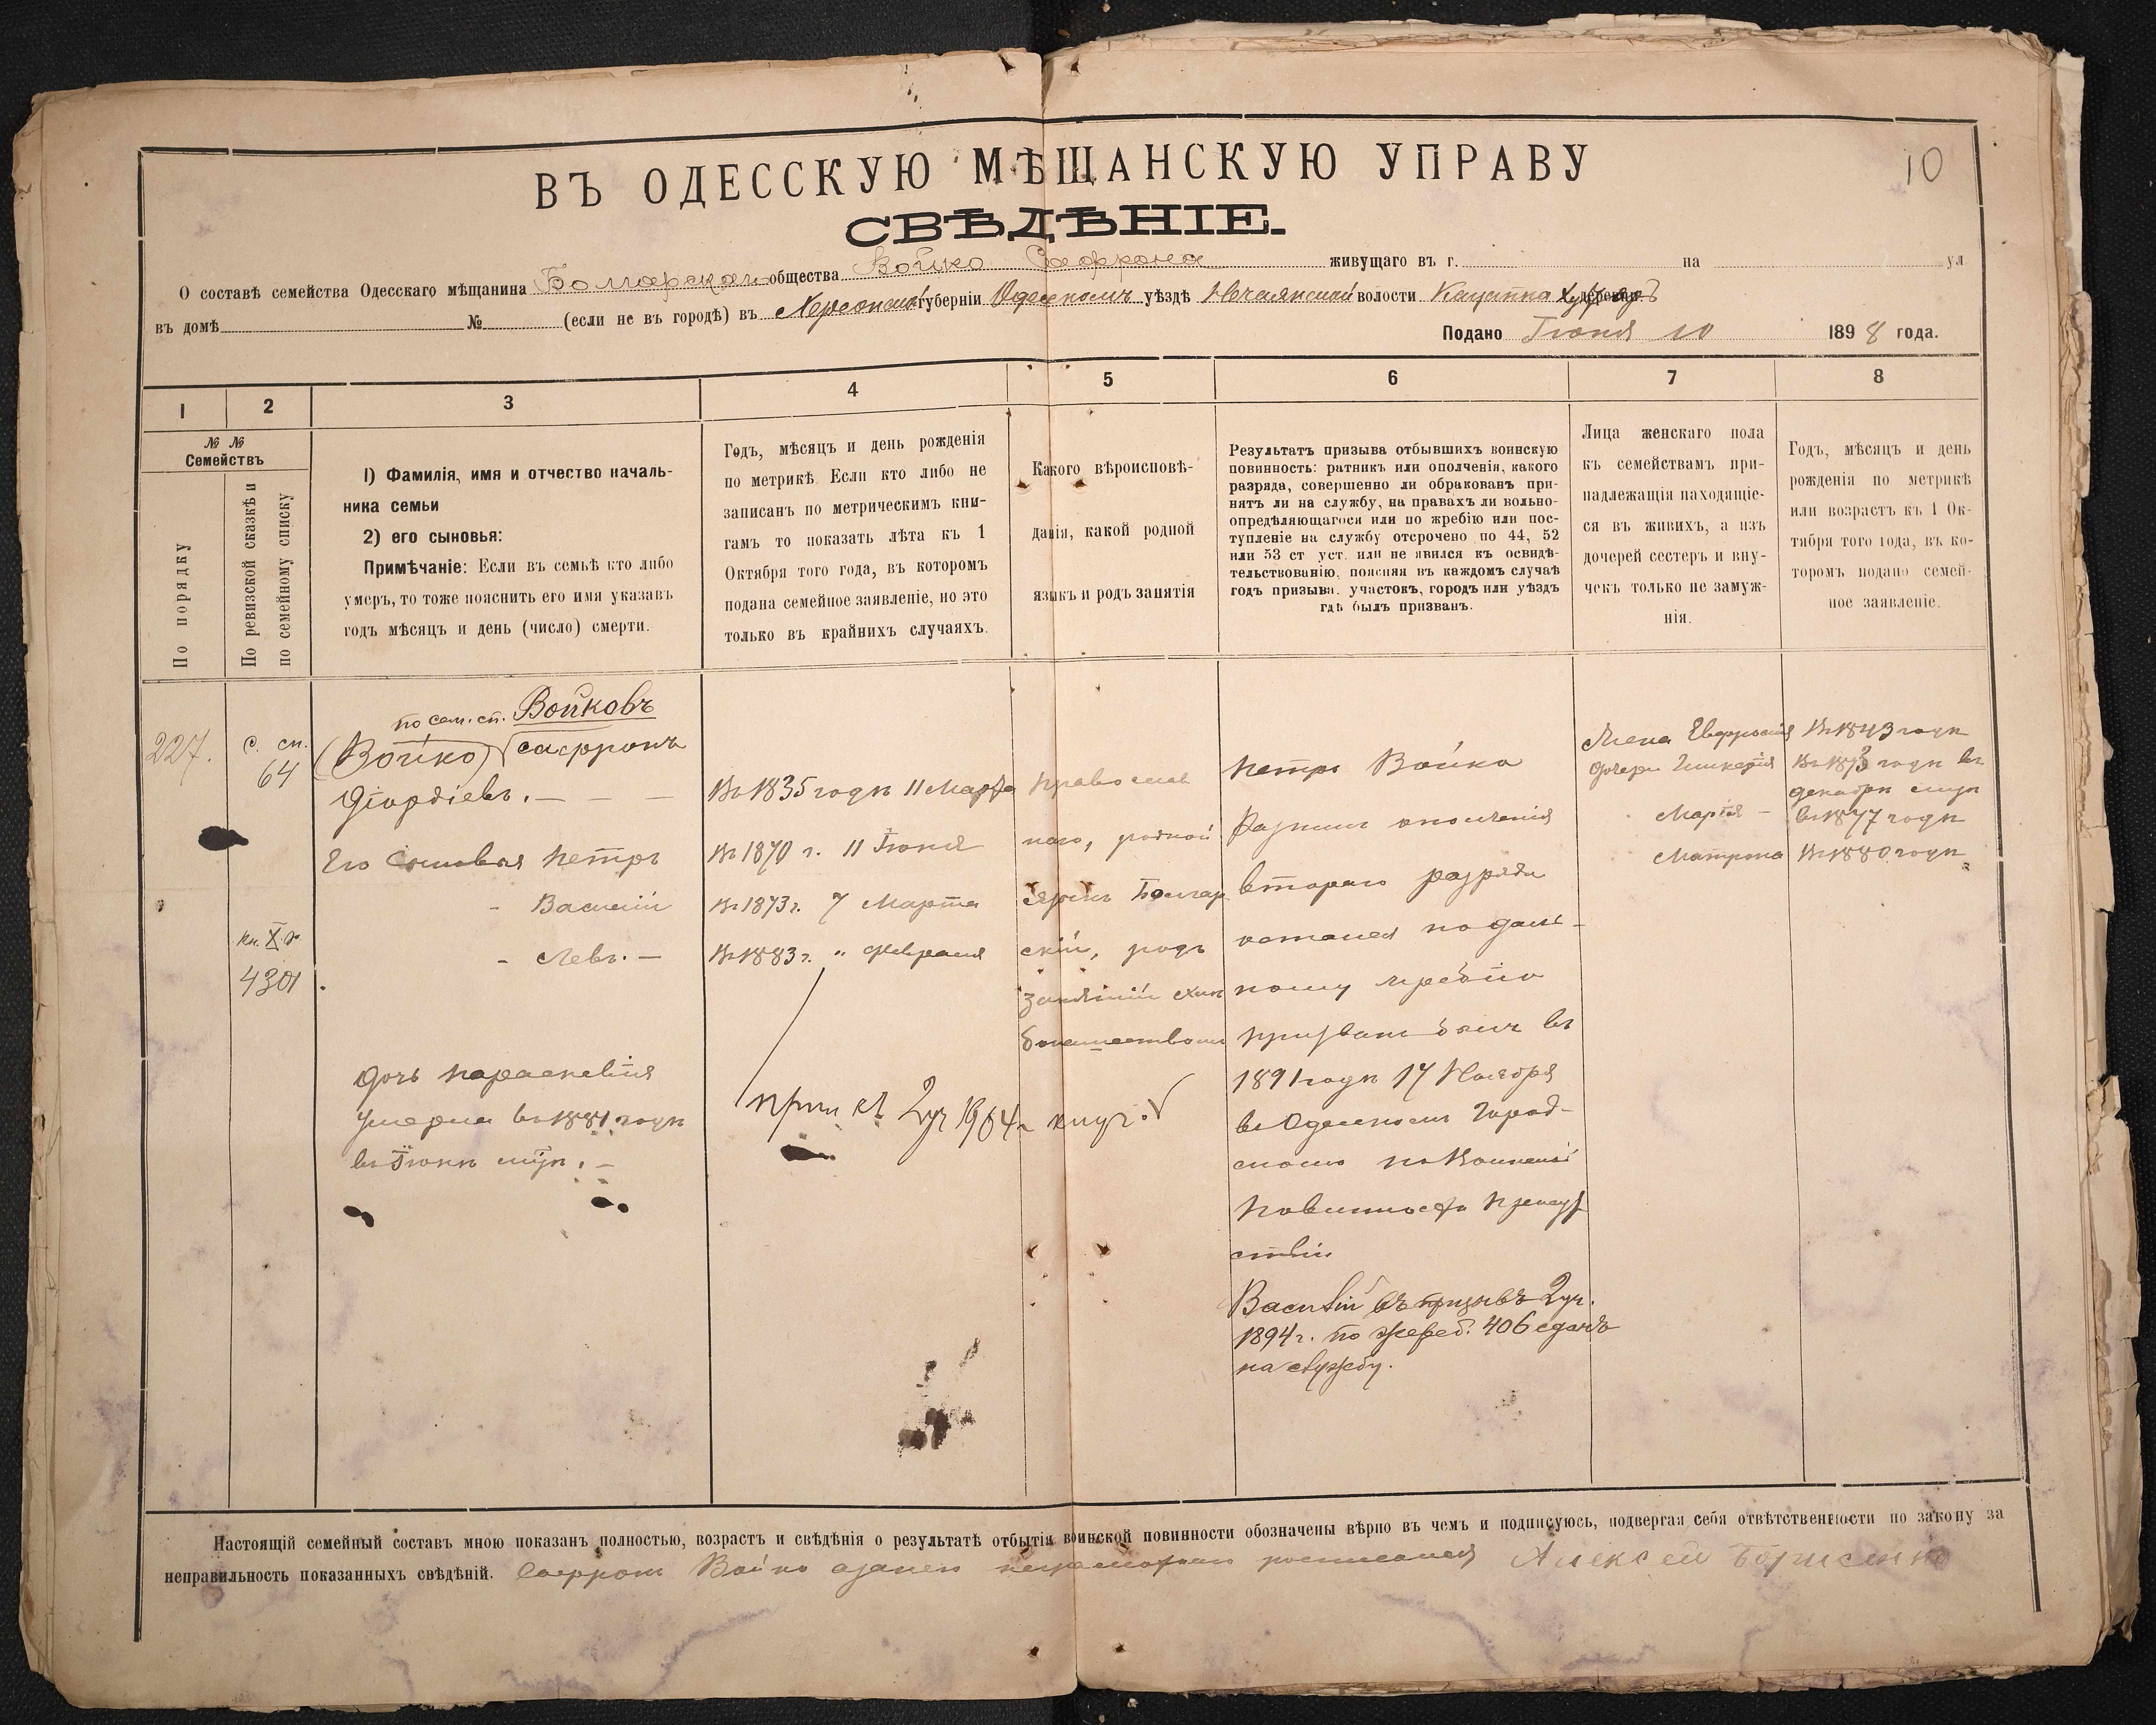 10
ВЪ ОДЕССКУЮ МѢЩАНСКУЮ УПРАВУ
СВѢДѢНІЕ.
О составѣ семейства Одесскаго мѣщанина Болгарскаго общества Войко Сафрона живущаго въ г. на ул
въ домѣ № (если не въ городѣ) въ Херсонской губерніи Одесскомъ уѣздѣ Нечаянской волости деревни
Подано Іюня 10 1898 года.
1 2 3 4 5 6 7 8
№ № Семействъ
По порядку
По ревизской сказкѣ и
по семейному списку
1) Фамилія, имя и отчество началь-
ника семьи
2) его сыновья:
Примѣчаніе: Если въ семьѣ кто либо
умеръ, то тоже пояснить его имя указавъ
годъ мѣсяцъ и день (число) смерти.
Годъ, мѣсяцъ и день рожденія
по метрикѣ Если кто либо не
записанъ по метрическимъ кни-
гамъ то показать лѣта къ 1
Октября того года, въ которомъ
подана семейное заявленіе, но это
только въ крайнихъ случаяхъ.
Какого вѣроисповѣ-
данія, какой родной
языкъ и родъ занятія
Результатъ призыва отбывшихъ воинскую
повинность: ратникъ или ополченія, какого
разряда, совершенно ли обракованъ при-
нятъ ли на службу, на правахъ ли вольно-
опредѣляющагося или по жребію или пос-
тупленіе на службу отсрочено по 44, 52
или 53 ст уст. или не явился къ освидѣ-
тельствованію, поясняя въ каждомъ случаѣ
годъ призыва, участокъ, городъ или уѣздъ
гдѣ былъ призванъ.
Лица женскаго пола
къ семействамъ при-
надлежащія находящіе-
ся въ живихъ, а изъ
дочерей сестеръ и вну-
чекъ только не замуж-
нія.
Годъ, мѣсяцъ и день
рожденія по метрикѣ
или возрастъ къ 1 Ок-
тября того года, въ ко-
торомъ подано семей-
ное заявленіе.
227.
с. сп.
64
кн. X
4301
по сем. сп. Войковъ
(Войко) Сафронъ
Его Сыновья Петръ
- Василій
- Левъ. -
Дочь Параскевія
Умерла въ 1881 году
Въ 1835 году 11 Марта
Въ 1870 г. 11 Іюня
Въ 1873 г. 7 Марта
Въ 1883 г. " Февраля
2 уч 1904 г
Православ
наго, родной
языкъ Болгар
скій, родъ
занятій хлѣ
бопашествомъ
Петръ Войко
ополченія
втораго разряда
остался по даль-
нему жребію
призванъ былъ въ
1891 году 17 Ноября
въ Одесскомъ Город-
скомъ по Воинской
повинности присут
ствіи
Василій въ призывъ 2 уч.
1894 г. по жереб. 406 сданъ
на службу.
Жена Евфросинія
дочери Гликерія
Марія -
Матрона
Въ 1843 году
Въ 1873 году въ
декабрѣ м-цѣ
въ 1877 году
Въ 1880 году
Настоящій семейный составъ мною показанъ полностью, возрастъ и свѣдѣнія о результатѣ отбытія воинской повинности обозначены вѣрно въ чемъ и подписуюсь, подвергая себя отвѣтственности по закону за
неправильность показанныхъ свѣдѣній. Сафронъ Войко а за него неграмотнаго росписался Алексей Борисенко